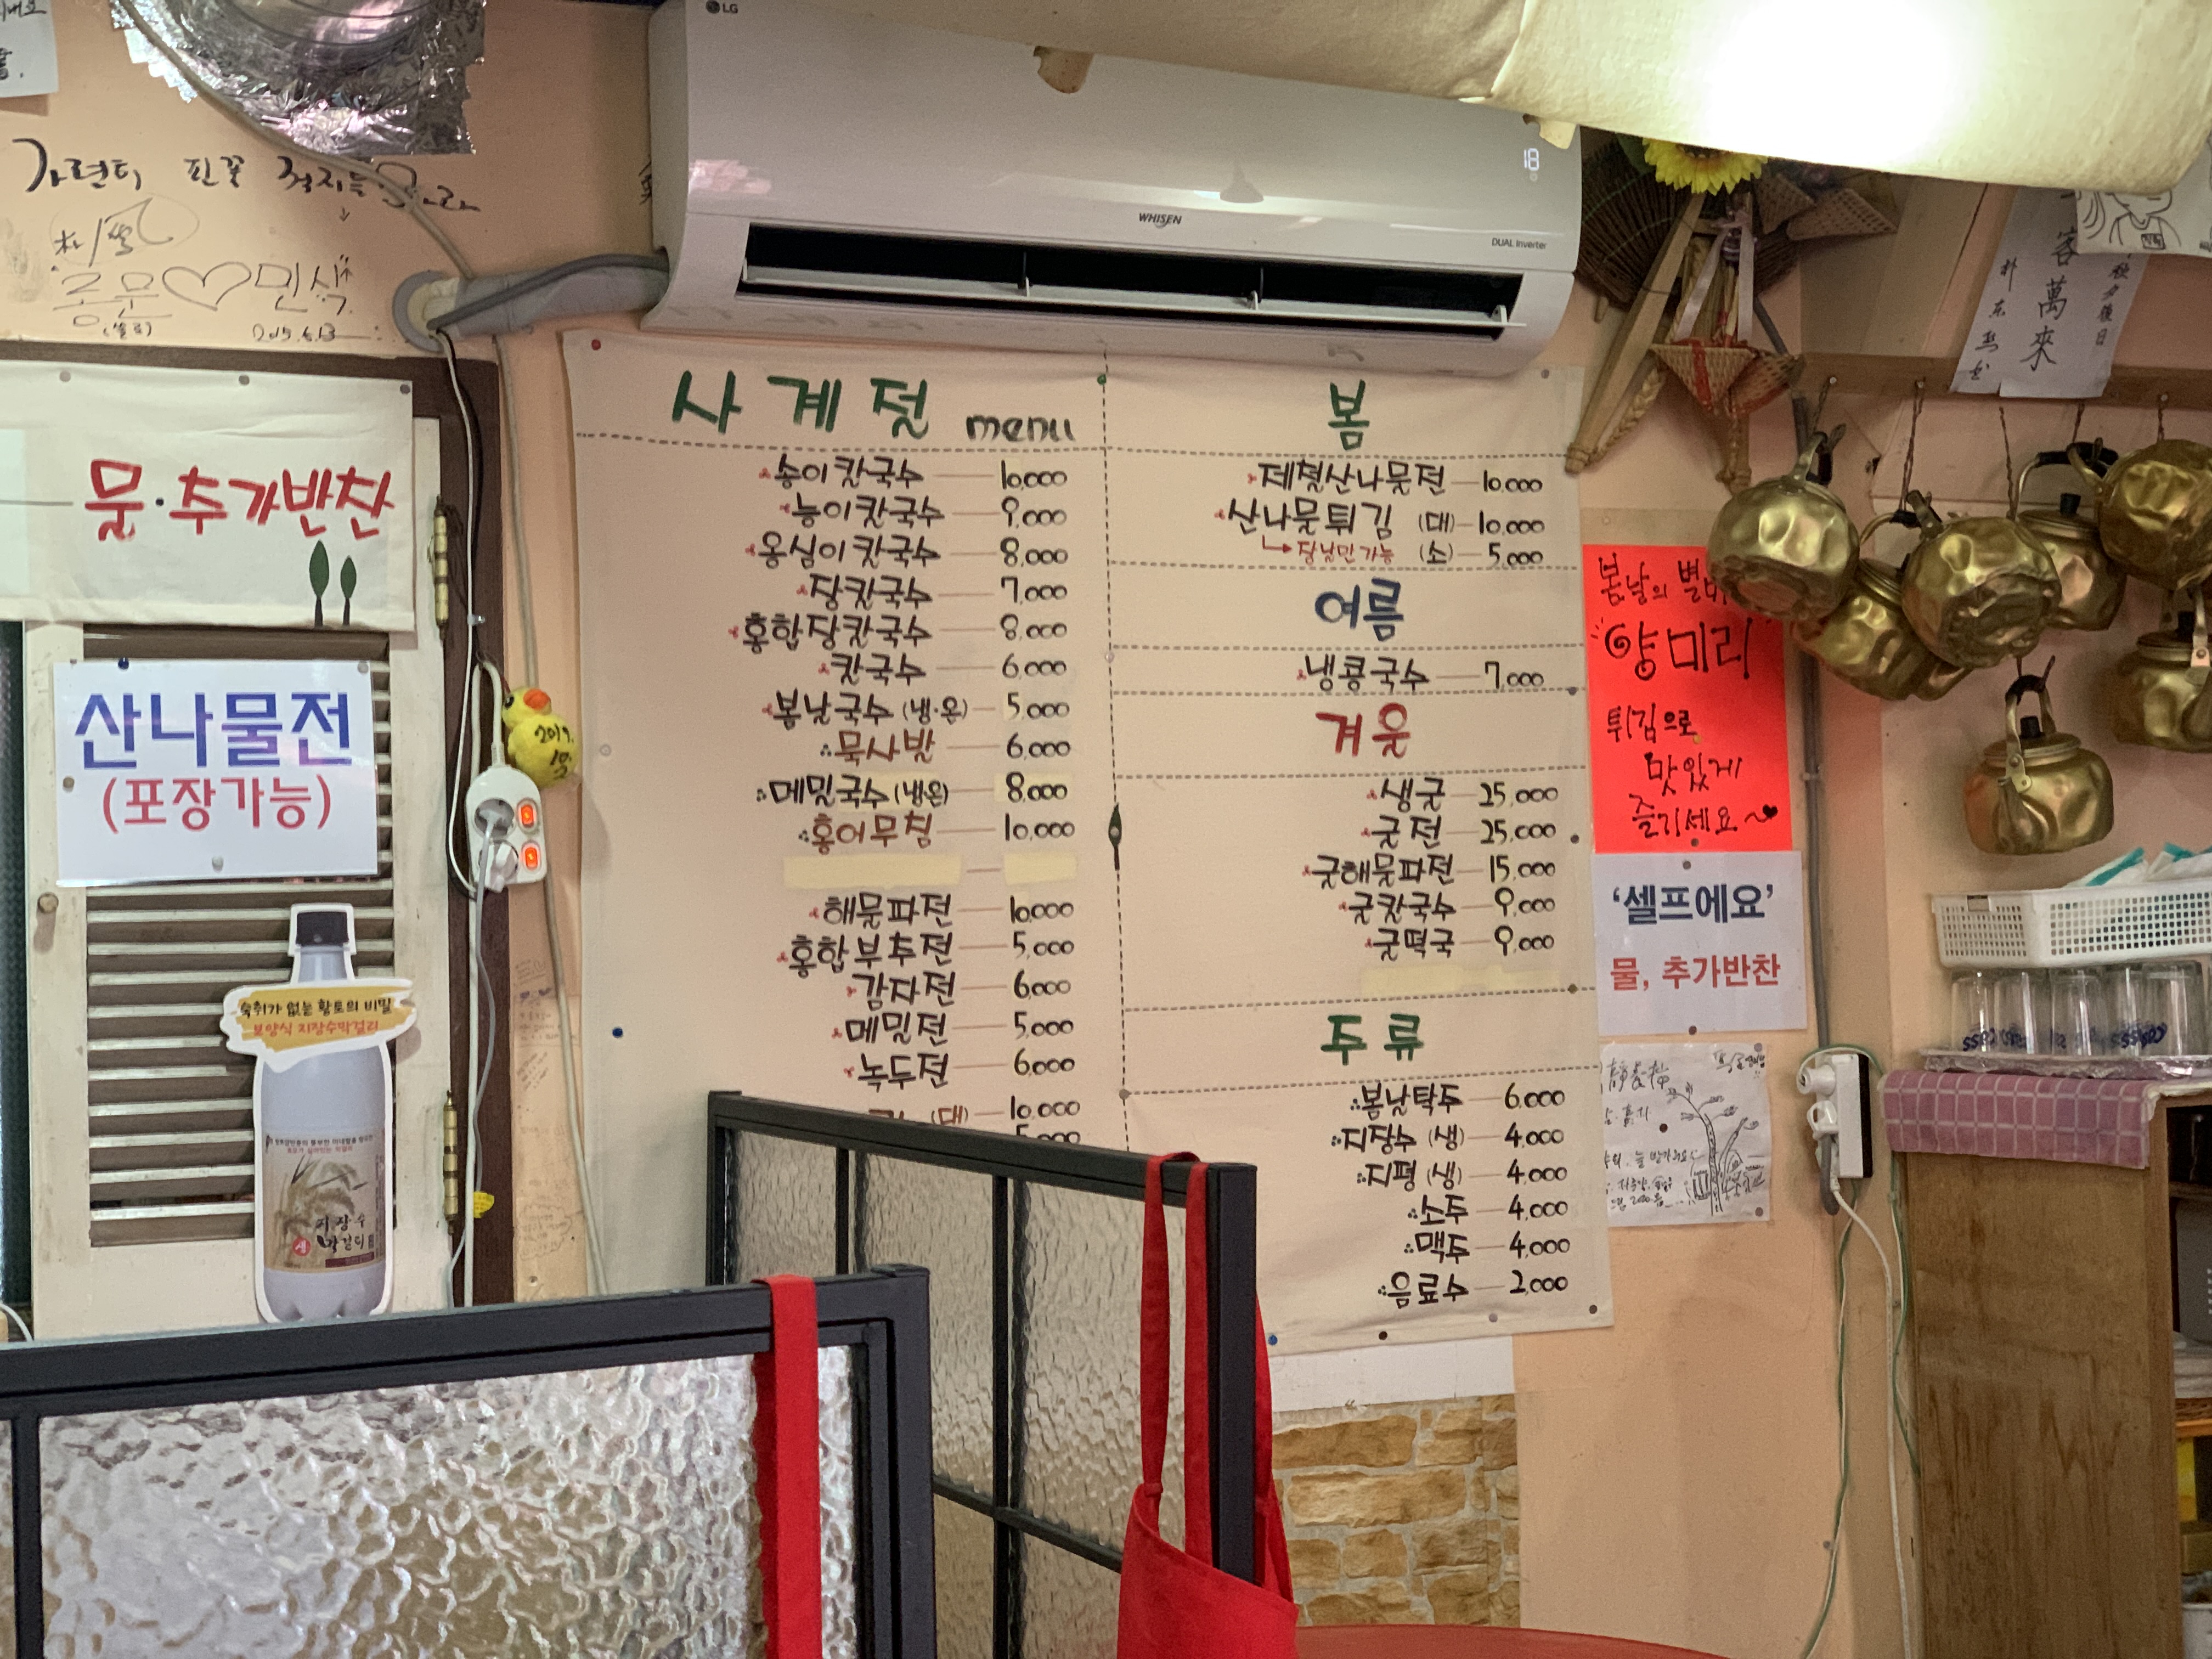 LG
18
WHISEN
DUAL Inverter
가련터 핀꽃
2015.6.13
물·추가반찬
산나물전
(포장가능)
2019.
10.
2
숙취가 없는 황토의 비밀
보양식 지장수막걸리
지장수
생 막걸리
사계절 menu
송이칼국수 10,000
능이칼국수 9,000
옹심이칼국수 8,000
장칼국수 7,000
홍합장칼국수 8,000
칼국수 6,000
봄날국수 (냉·온) 5,000
묵사발 6,000
메밀국수 (냉온) 8,000
홍어무침 10,000
해물파전 10,000
홍합부추전 5,000
감자전 6,000
메밀전 5,000
녹두전 6,000
(대) 10,000
5,000
봄
제철산나물전 10,000
산나물튀김 (대) 10,000
장날만가능 (소) 5,000
여름
냉콩국수 7,000
겨울
생굴 25,000
굴전 25,000
굴해물파전 15,000
굴칼국수 9,000
굴떡국 9,000
주류
봄날탁주 6,000
지장수 (생) 4,000
지평 (생) 4,000
소주 4,000
맥주 4,000
음료수 2,000
봄날의 별미
양미리
튀김으로
맛있게
즐기세요~♥
'셀프에요'
물, 추가반찬
客萬來
Cass